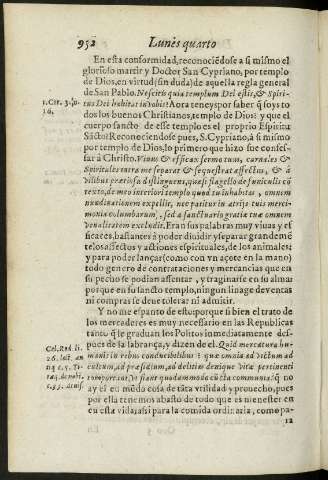 952 Lunes quarto
En esta conformidad, reconociẽdose a si mismo el
glorioso martir y Doctor San Cypriano, por templo
de Dios, en virtud (sin duda) de aquella regla general
de San Pablo. Nescitis quia templum Dei estis, & Spiri-
1. Cor. 3.
16.
tus Dei habitat in vobis? Aora teneys por saber q̃ soys to
dos los buenos Christianos, templo de Dios: y que el
cuerpo sancto de esse templo es el proprio Espiritu
Sãcto: Reconociendose pues, S. Cypriano, à si mismo
por templo de Dios, lo primero que hizo fue confes-
sar à Christo. Viuus & efficax sermo tuus, carnales &
Spirituales intra me separat & sequestrat affectus, & à
flagello de funiculis cõ
texto, de meo interiori templo quod tu inhabitas, omnem
nundinationem expellit, nec patitur in atrijs tuis merci-
monia columbarum, sed a sanctuario gratia tua omnem
venalitatem excludit. Eran sus palabras muy viuas y ef
ficaces, bastantes à poder diuidir y separar grandemẽ
te los afectos y actiones espirituales, de los animales:
y para poder lançar (como con vn açote en la mano)
todo genero de contrataciones y mercancias que en
si pecho se podian assentar, y traginarse en su alma:
porque en su sancto templo, ningun linage de ventas
ni compras se deue tolerar ni admitir.
Y no me espanto de esto: porque si bien el trato de
los mercaderes es muy necessario en las Republicas
tanto q̃ le graduan los Politos inmediatamente des-
pues de la labrança, y dizen de el. Quid mercatura hu-
Cel. Rod. li.
manis in rebus conducibilius? quæ omnia ad victum ad
cultum, ad præsidium, ad delitias denique vita pertinenti
comportat, & fiant quodammodo cũcta communia? q̃ no
ay el en modo cosa de tãta vtilidad y prouecho, pues
por ella tenemos abasto de todo que es menester en
en esta vida: assi para la comida ordinaria, como pa-